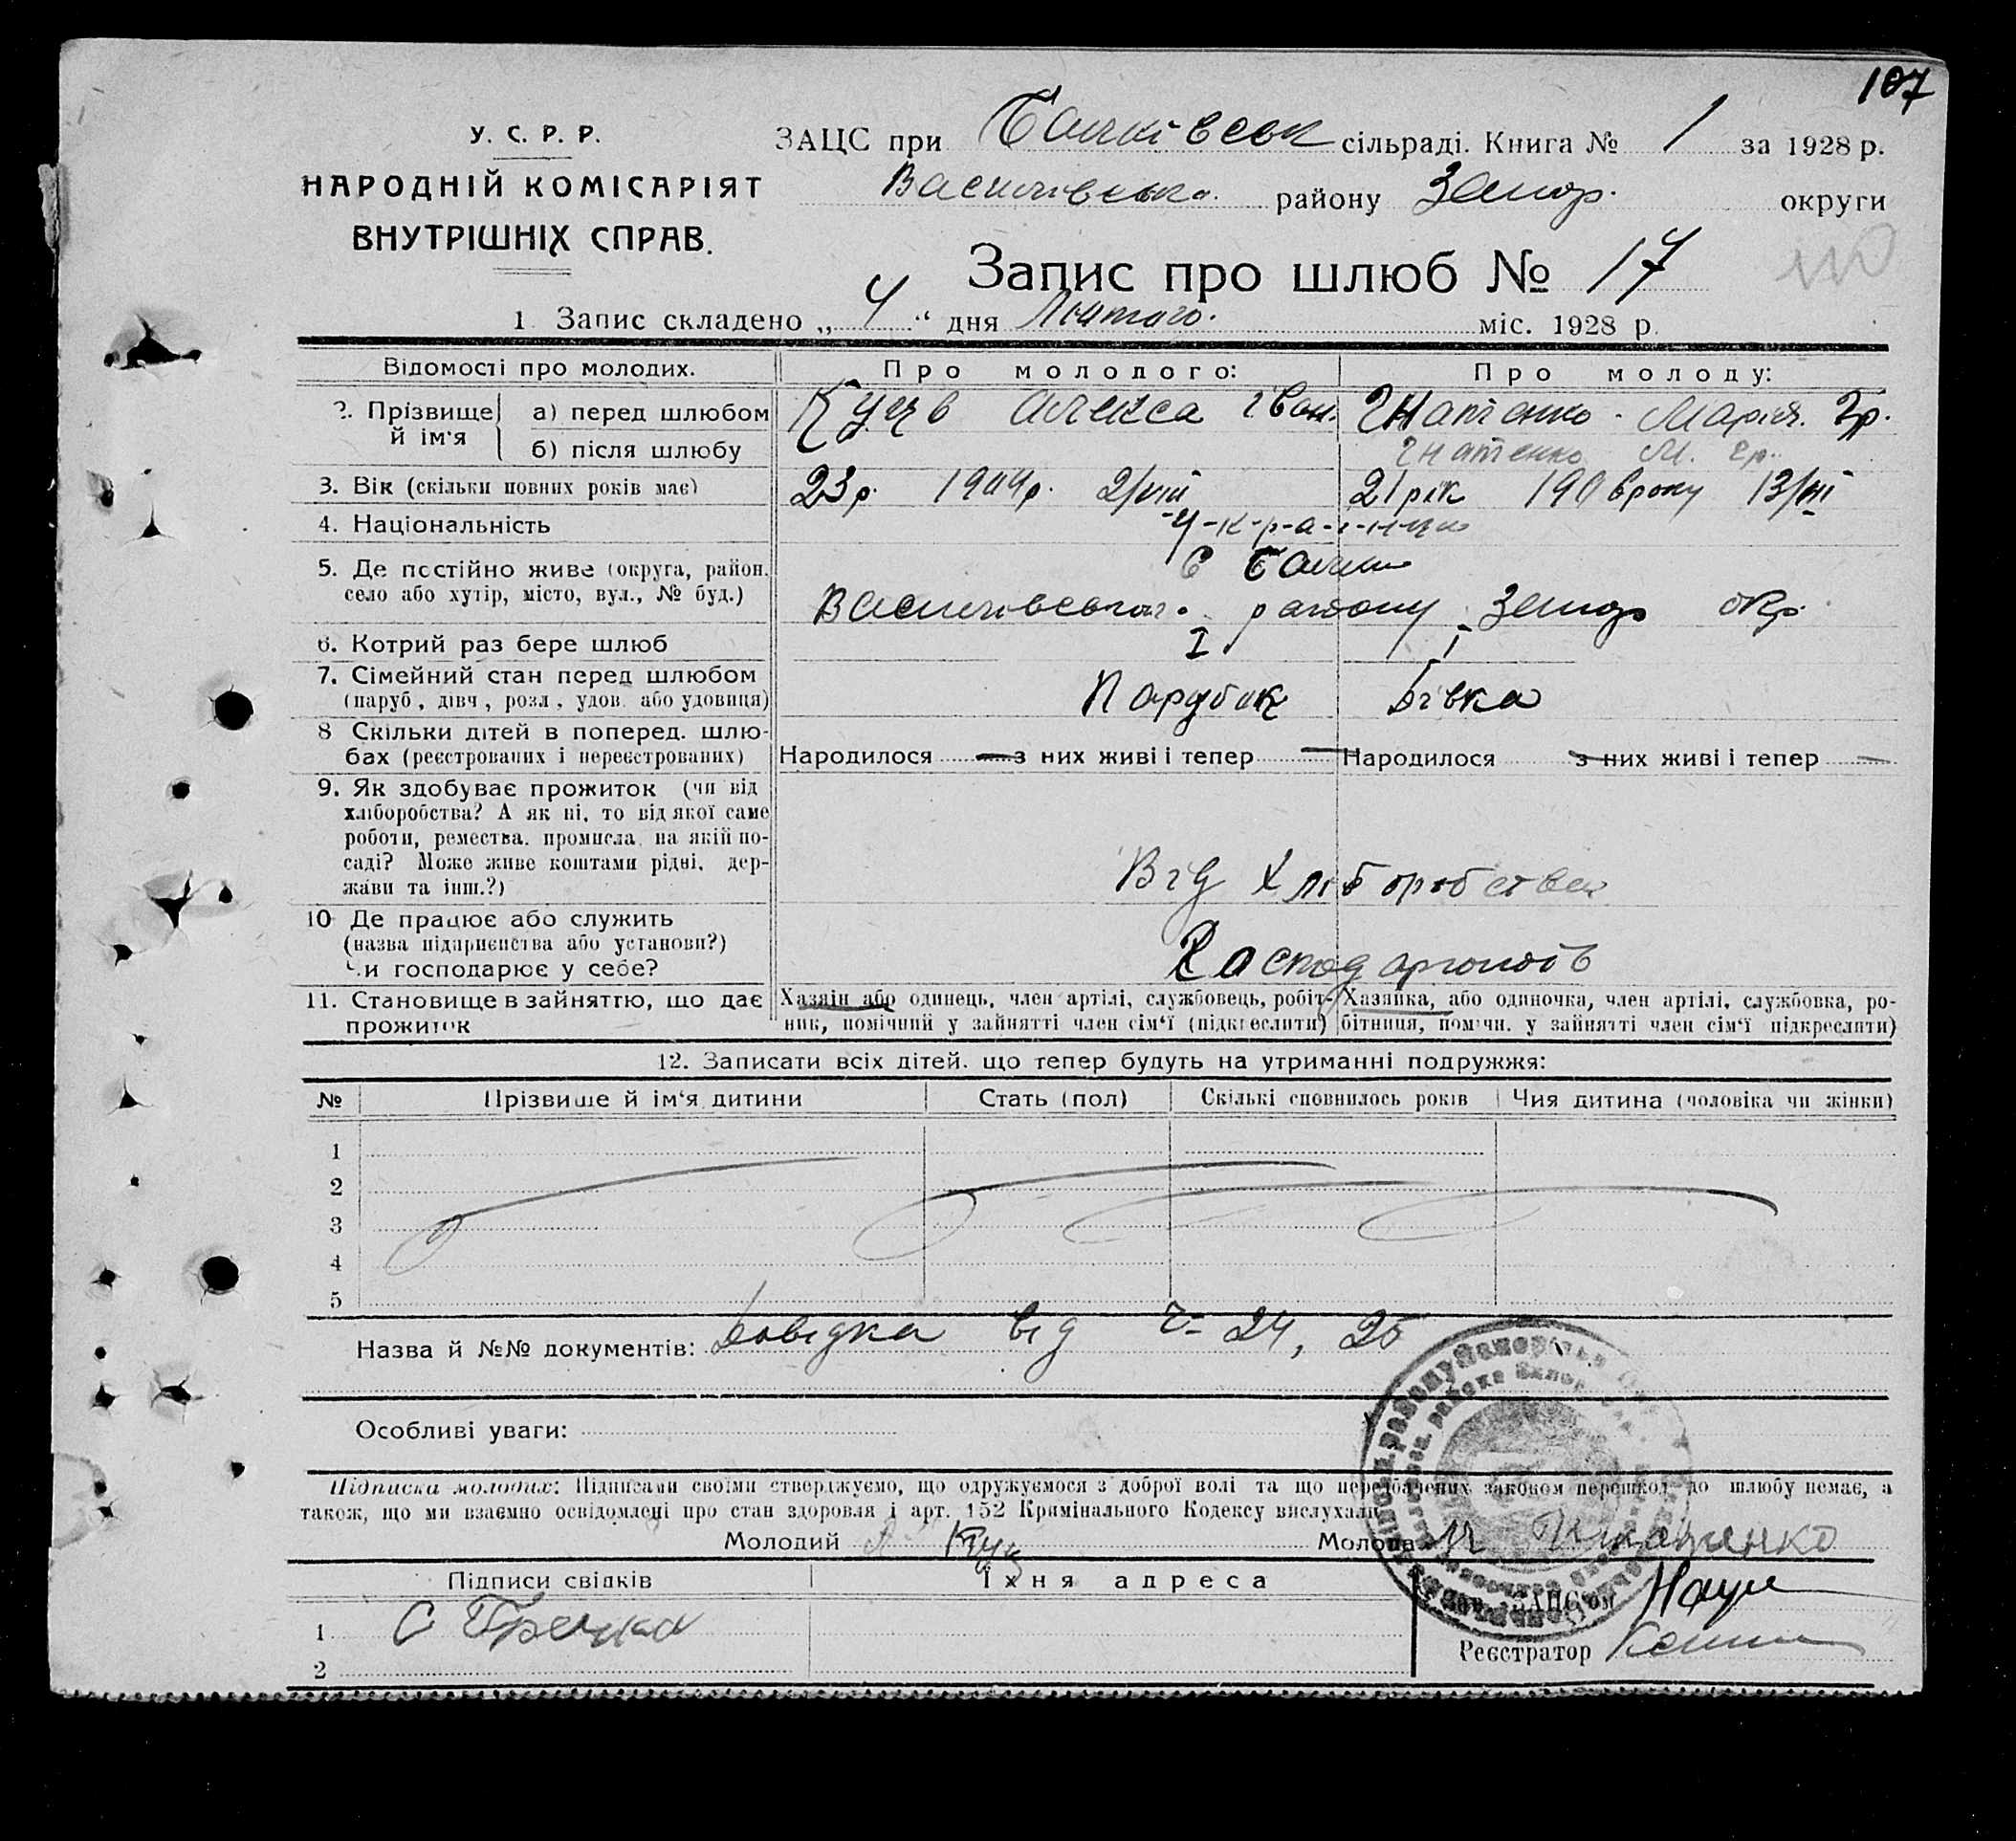 107
У. С. Р. Р.
НАРОДНІЙ КОМІСАРІЯТ
ВНУТРІШНІХ СПРАВ.
ЗАЦС при Балківськ сільраді. Книга № 1 за 1928 р.
Василівсько району Запор. округи
110
Запис про шлюб № 17
1 Запис складено „ 4 “ дня Лютого. міс. 1928 р.
Відомості про молодих. Про молодого: Про молоду:
2. Прізвище й ім'я а) перед шлюбом Куцъ Алекса Іван. Гнатенко Марія. Гр.
б) після шлюбу Гнатенко М. Гр.
3. Вік (скільки повних років має) 23 р. 1904 р. 2/VIII 21 рік 1906 року 13/III
4. Національність У-к-р-а-ї-н-ці
5. Де постійно живе (округа, район, село або хутір, місто, вул., № буд.) С Балки
Василівського району Запор окр.
6. Котрий раз бере шлюб I I
7. Сімейний стан перед шлюбом (паруб, дівч, розл, удов. або удовиця) Парубок Дівка
8 Скільки дітей в поперед. шлюбах (реєстрованих і нереєстрованих) Народилося — з них живі і тепер — Народилося — з них живі і тепер —
9. Як здобуває прожиток (чи від
хліборобства? А як ні, то від якої саме
роботи, ремества, промисла, на якій по-
саді? Може живе коштами рідні, дер-
жави та інш.?) Від хліборобства
10 Де працює або служить
(назва підприємства або установи?)
Чи господарює у себе? Господарюють
11. Становище в зайняттю, що дає Хазяїн або одинець, член артілі, службовець, робіт- Хазяйка, або одиночка, член артілі, службовка, ро-
прожиток ник, помічний у зайнятті член сім'ї (підкреслити) бітниця, помічн. у зайнятті член сім'ї підкреслити)
12. Записати всіх дітей. що тепер будуть на утриманні подружжя:
№ Прізвище й ім'я дитини Стать (пол) Скількі сповнилось років Чия дитина (чоловіка чи жінки)
1
2
3
4
5
Назва й №№ документів: Довідка від 24, 25
Особливі уваги:
Підписка молодих: Підписами своїми стверджуємо, що одружуємося з доброї волі та що передбачених законом перешкод до шлюбу немає, а
також, що ми взаємно освідомлені про стан здоровля і арт. 152 Кримінального Кодексу вислухали.
Молодий Куц Молода М Гнатенко
Підписи свідків Їхня адреса
1 С Гречка
2
Реєстратор